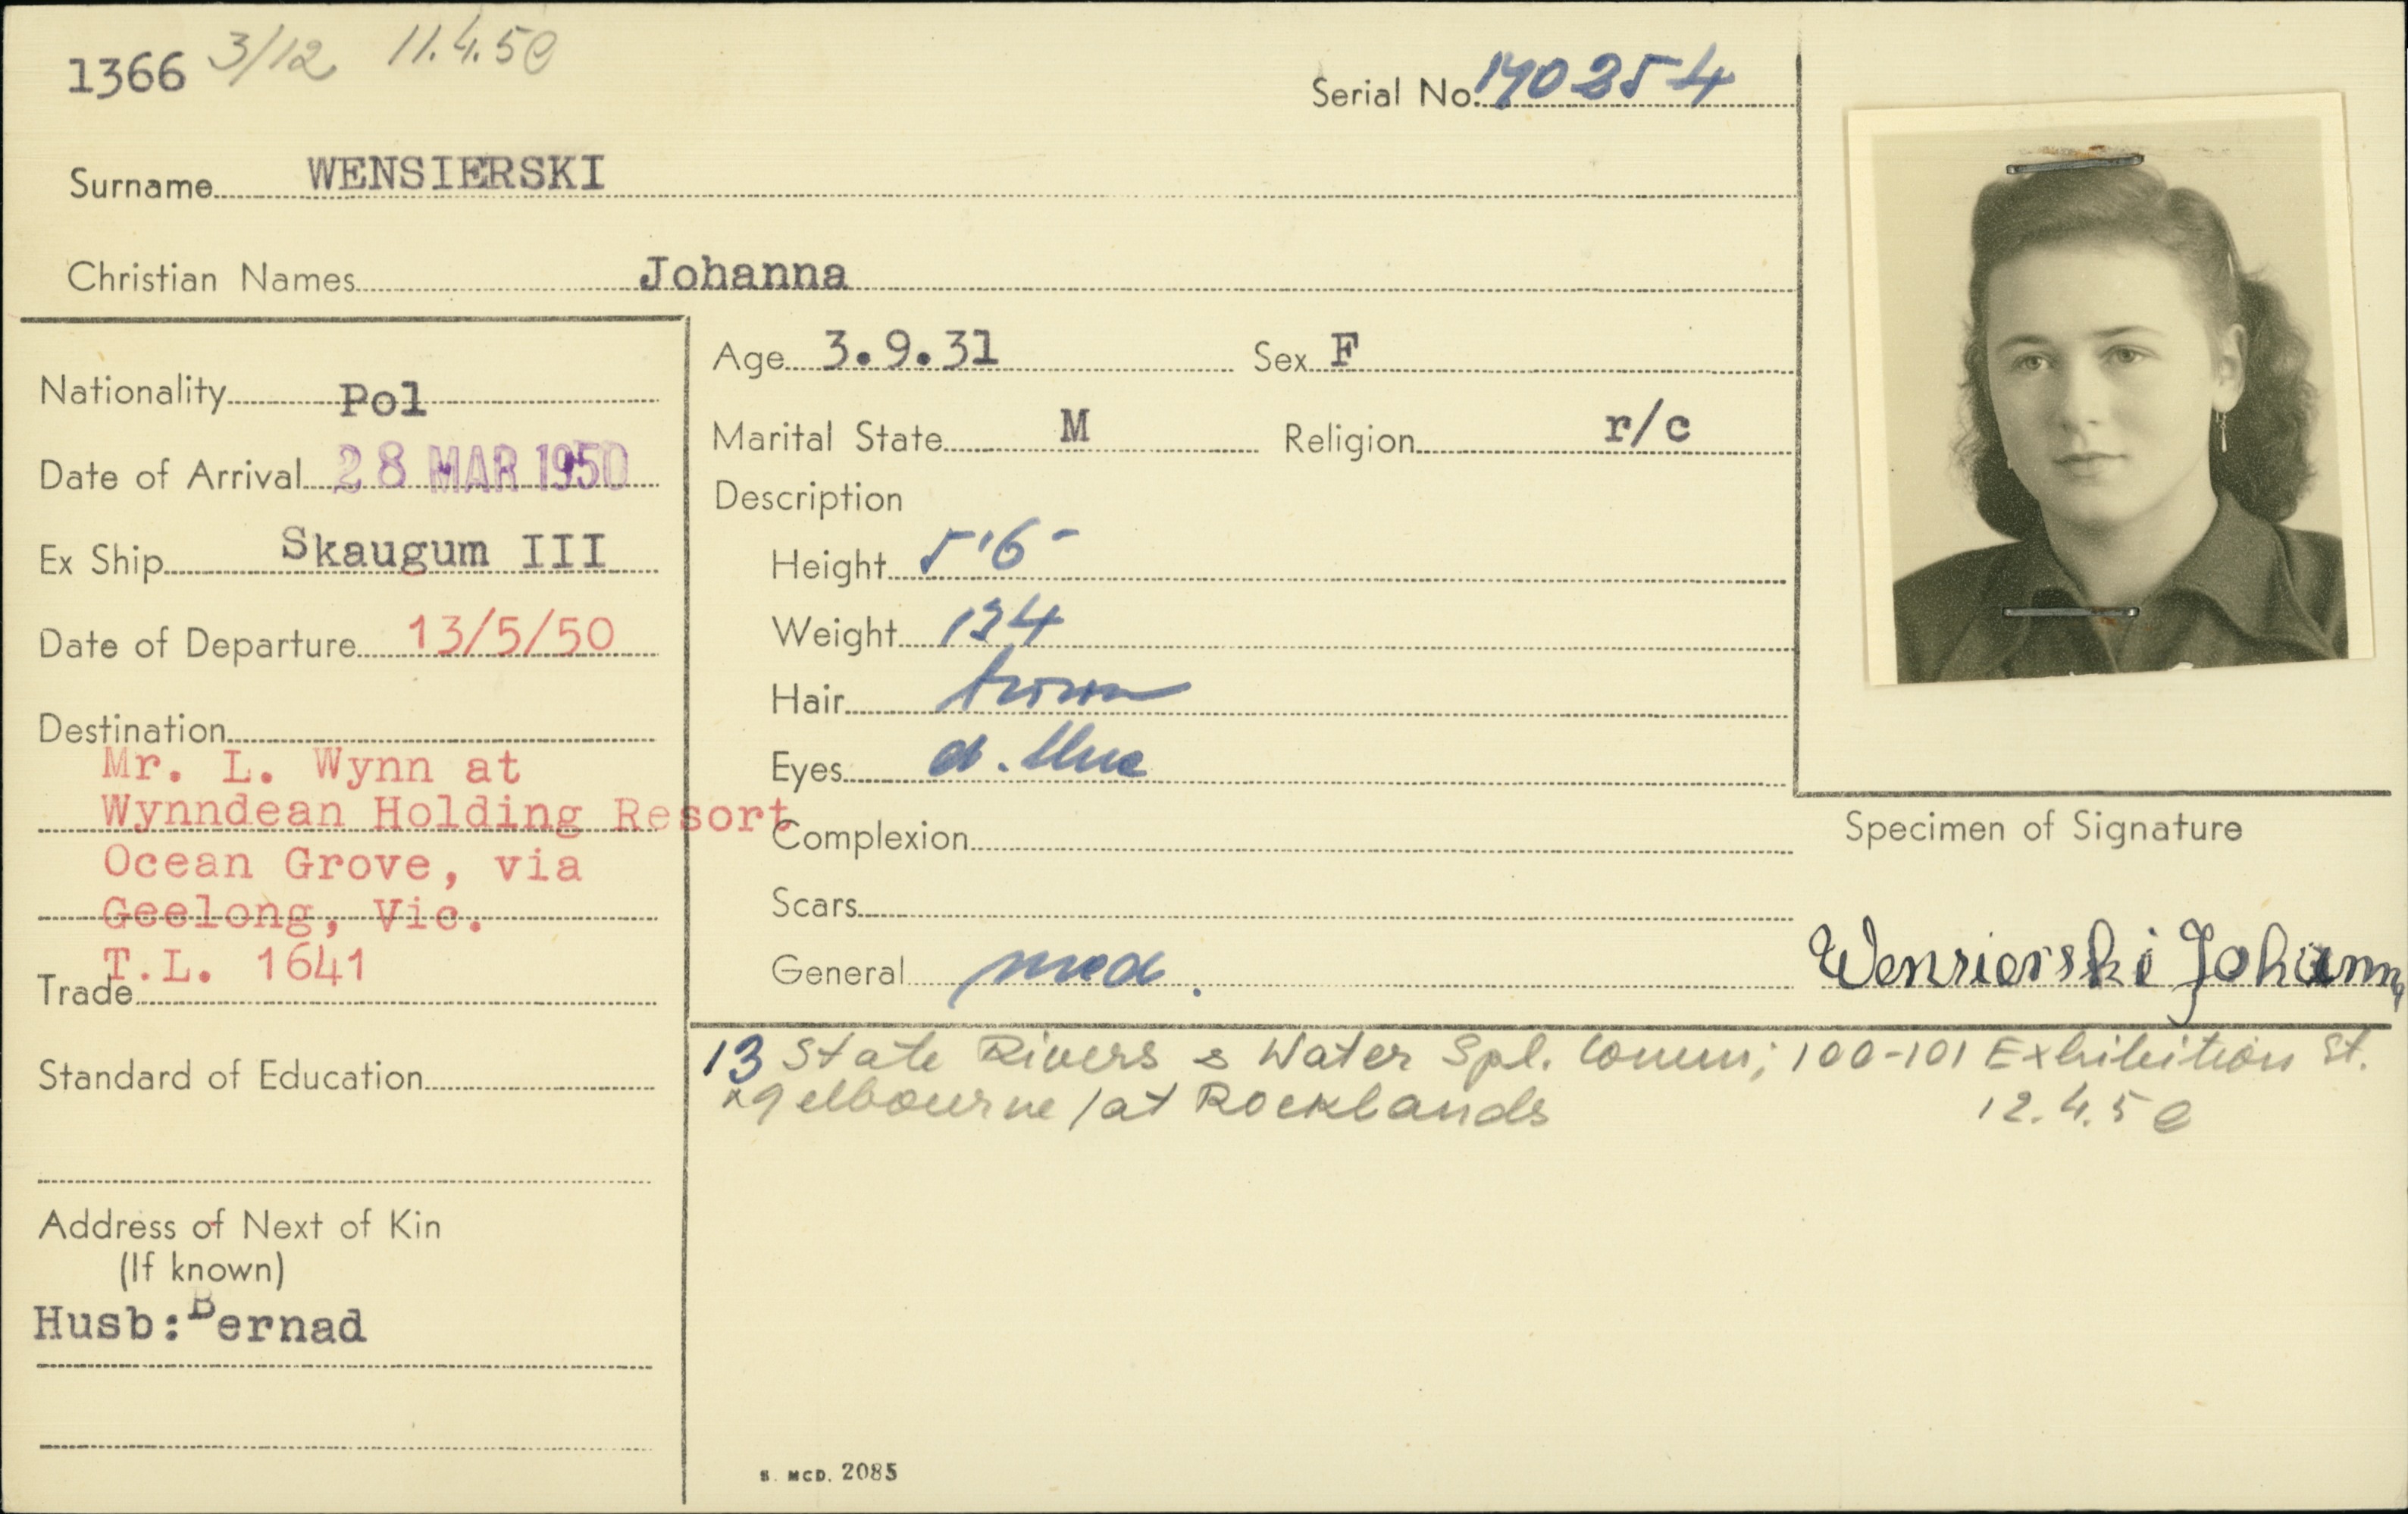 1366 3/12 11.4.50
Serial No. 1702354
Surname WENSIERSKI
Christian Names Johanna
Nationality Pol
Date of Arrival 28 MAR 1950
Ex Ship Skaugum III
Date of Departure 13/5/50
Destination
Mr. L. Wynn at
Wynndean Holding Resort
Ocean Grove, via
Geelong, Vic.
T.L. 1641
Trade
Standard of Education
Address of Next of Kin
(If known)
Husb: Bernad
Age 3.9.31 Sex F
Marital State M Religion r/c
Description
Height 5'6"
Weight 134
Hair brown
Eyes d. blue
Complexion
Scars
General med.
Specimen of Signature
Wensierski Johanna
13 State Rivers & Water Spl. Comm; 100-101 Exhibition St.
Melbourne / at Rocklands 12.4.50
S. MCD. 2085